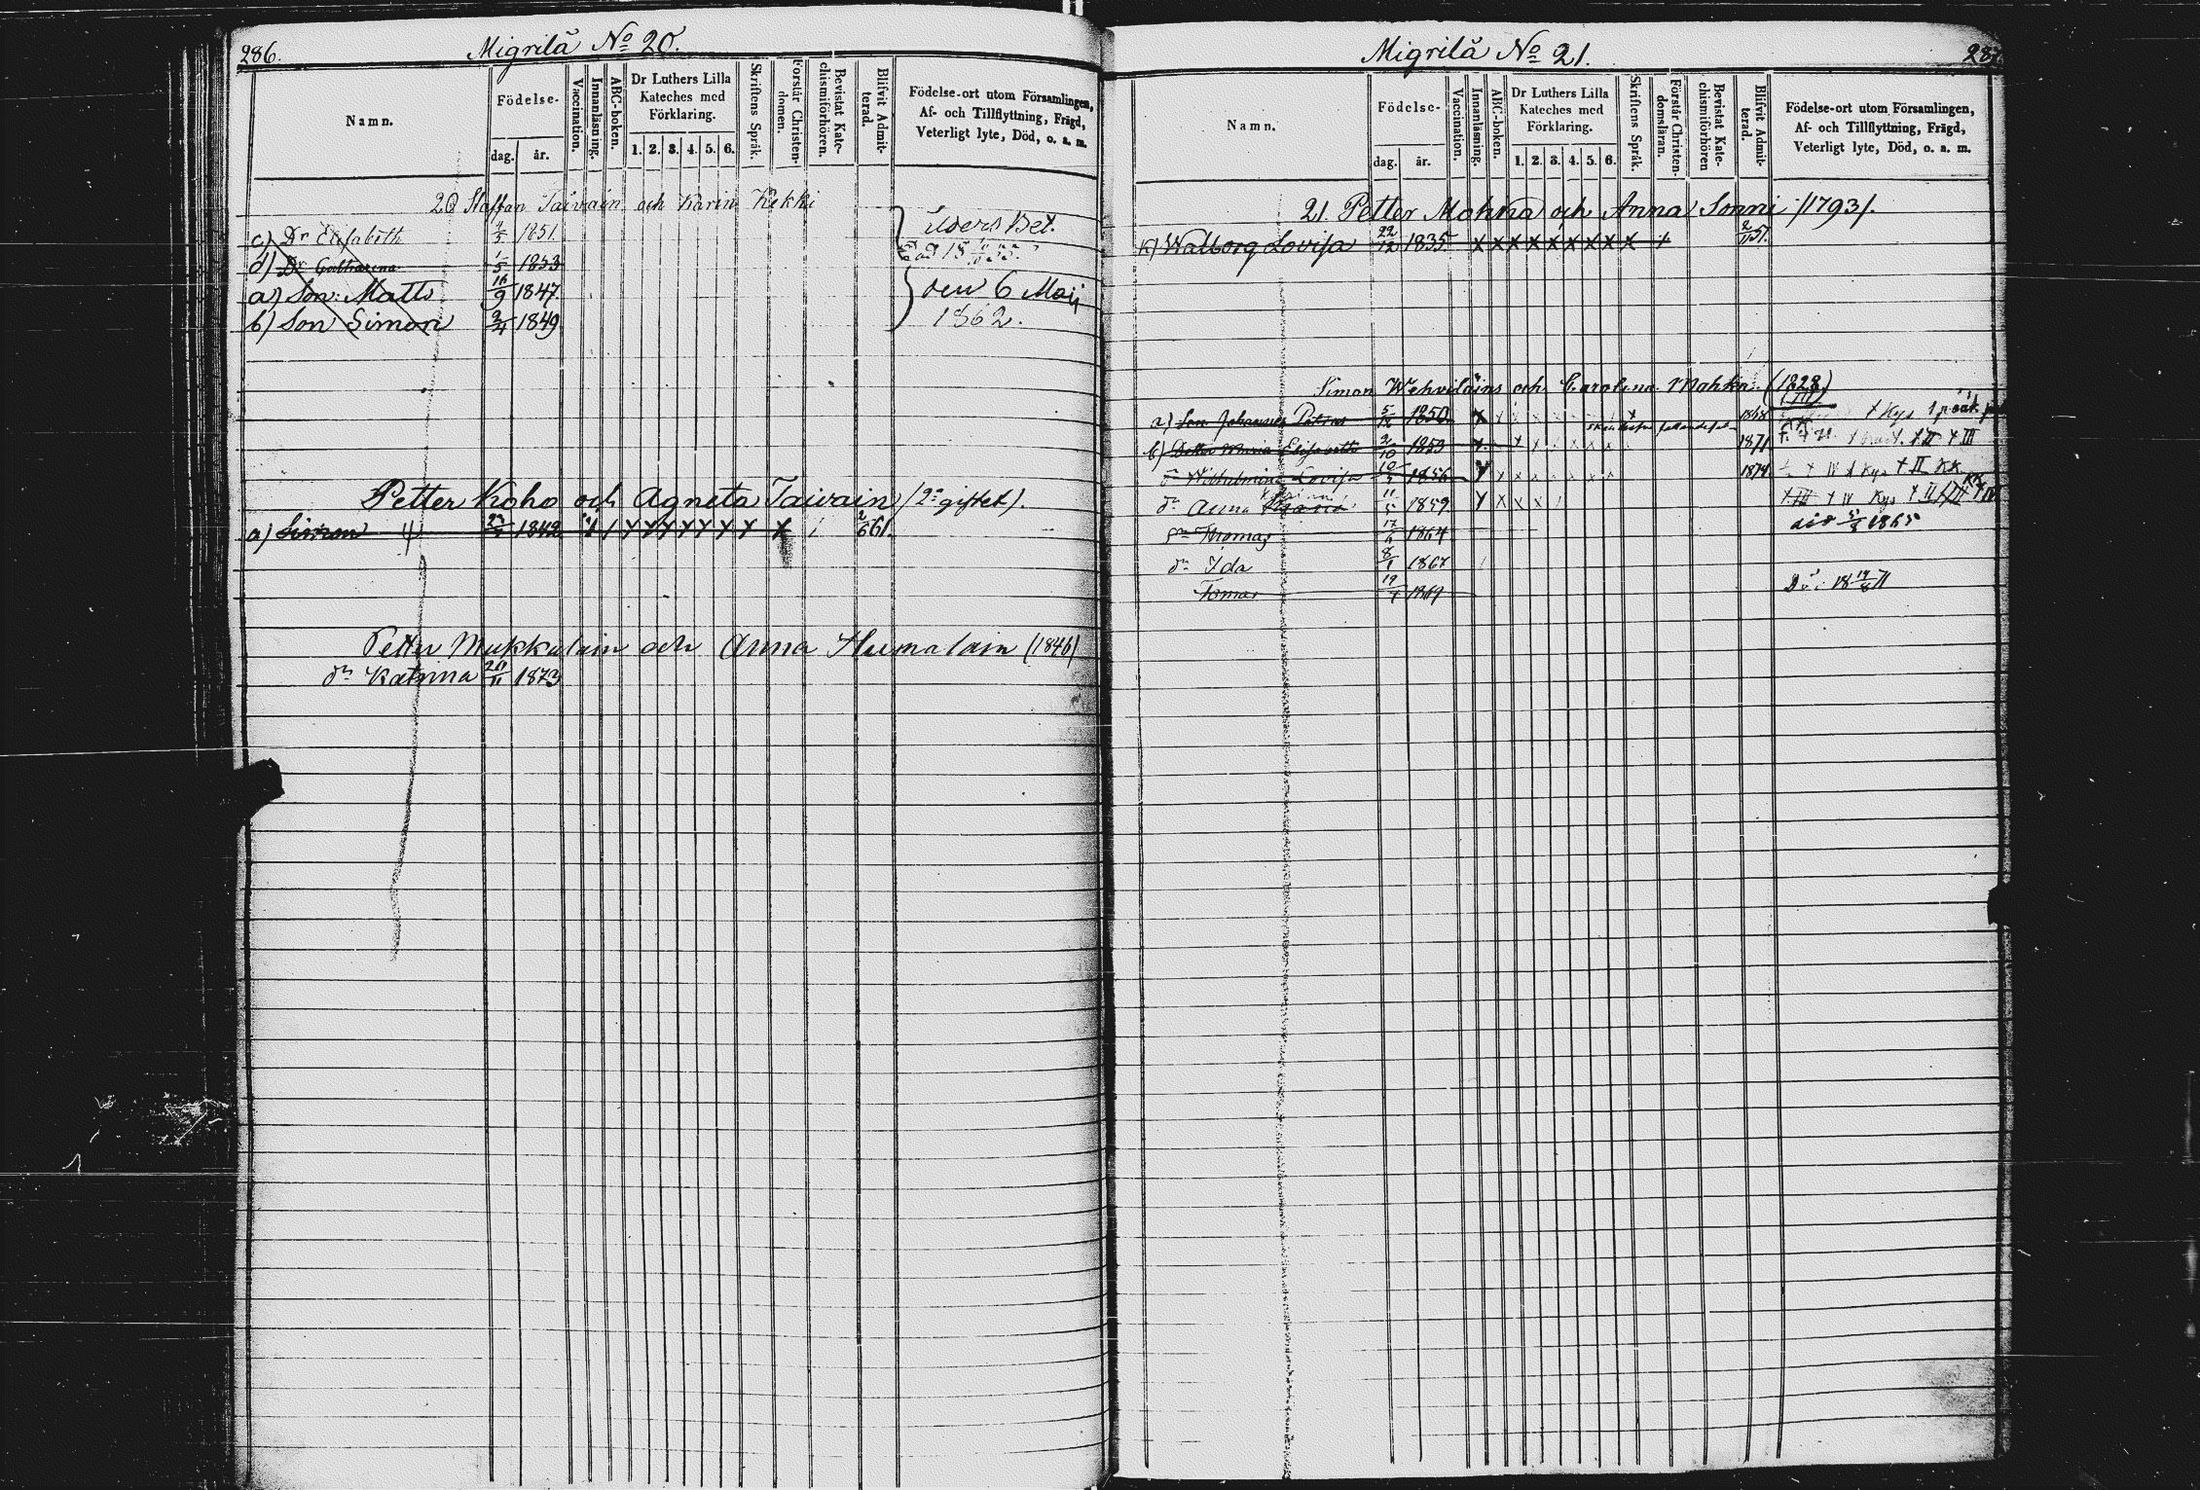 286.
Migrilä No 20.
Namn.
Födelse-
dag.
år.
Vaccination.
Innanläsning.
ABC-boken.
Dr Luthers Lilla
Kateches med
Förklaring.
1. 2. 3. 4. 5. 6.
Skriftens Språk.
Förstår Christen-
domen.
Bevistat Kate-
chismiförhören.
Blifvit Admit-
terad.
Födelse-ort utom Församlingen,
Af- och Tillflyttning, Frägd,
Veterligt lyte, Död, o. s. m.
20 Staffan Taivain och Karin Kekki
c) Dr Elisabeth 4/5 1851.
d) Dr Catharina 1/5 1853
a) Son Matts 16/9 1847.
b) Son Simon 2/4 1849
den 6 Maij
1862.
Petter Koho och Agneta Taivain (2 giftet).
a) Simon 1842 2/6 61.
Petter Mukkulain och Anna Humalain (1846)
dr Katrina 20/11 1873
Migrilä No 21.
287
Namn.
Födelse-
dag.
år.
Vaccination.
Innanläsning.
ABC-boken.
Dr Luthers Lilla
Kateches med
Förklaring.
1. 2. 3. 4. 5. 6.
Skriftens Språk.
Förstår Christen-
domsläran.
Bevistat Kate-
chismiförhören
Blifvit Admit-
terad.
Födelse-ort utom Församlingen,
Af- och Tillflyttning, Frägd,
Veterligt lyte, Död, o. s. m.
21. Petter Mahka och Anna Sonni /1793/.
k) Walborg Lovisa 22/12 1835 x x x x x x x x x 2/11 57.
Simon Wehviläins och Carolina Mahka (1828)
a) Son Johannes Petrus 5/12 1850 x 1868
b) Dotter Maria Elisabeth 2/10 1853 x 1871
Wilhelmina Lovisa 10/3 1856 1874
dr Anna Maria 11/5 1859
sn Thomas 17/6 1864 död 5/5 1865
dr Ida 8/1 1867
Tomas 19/4 1869 Dö: 18 19/8 71